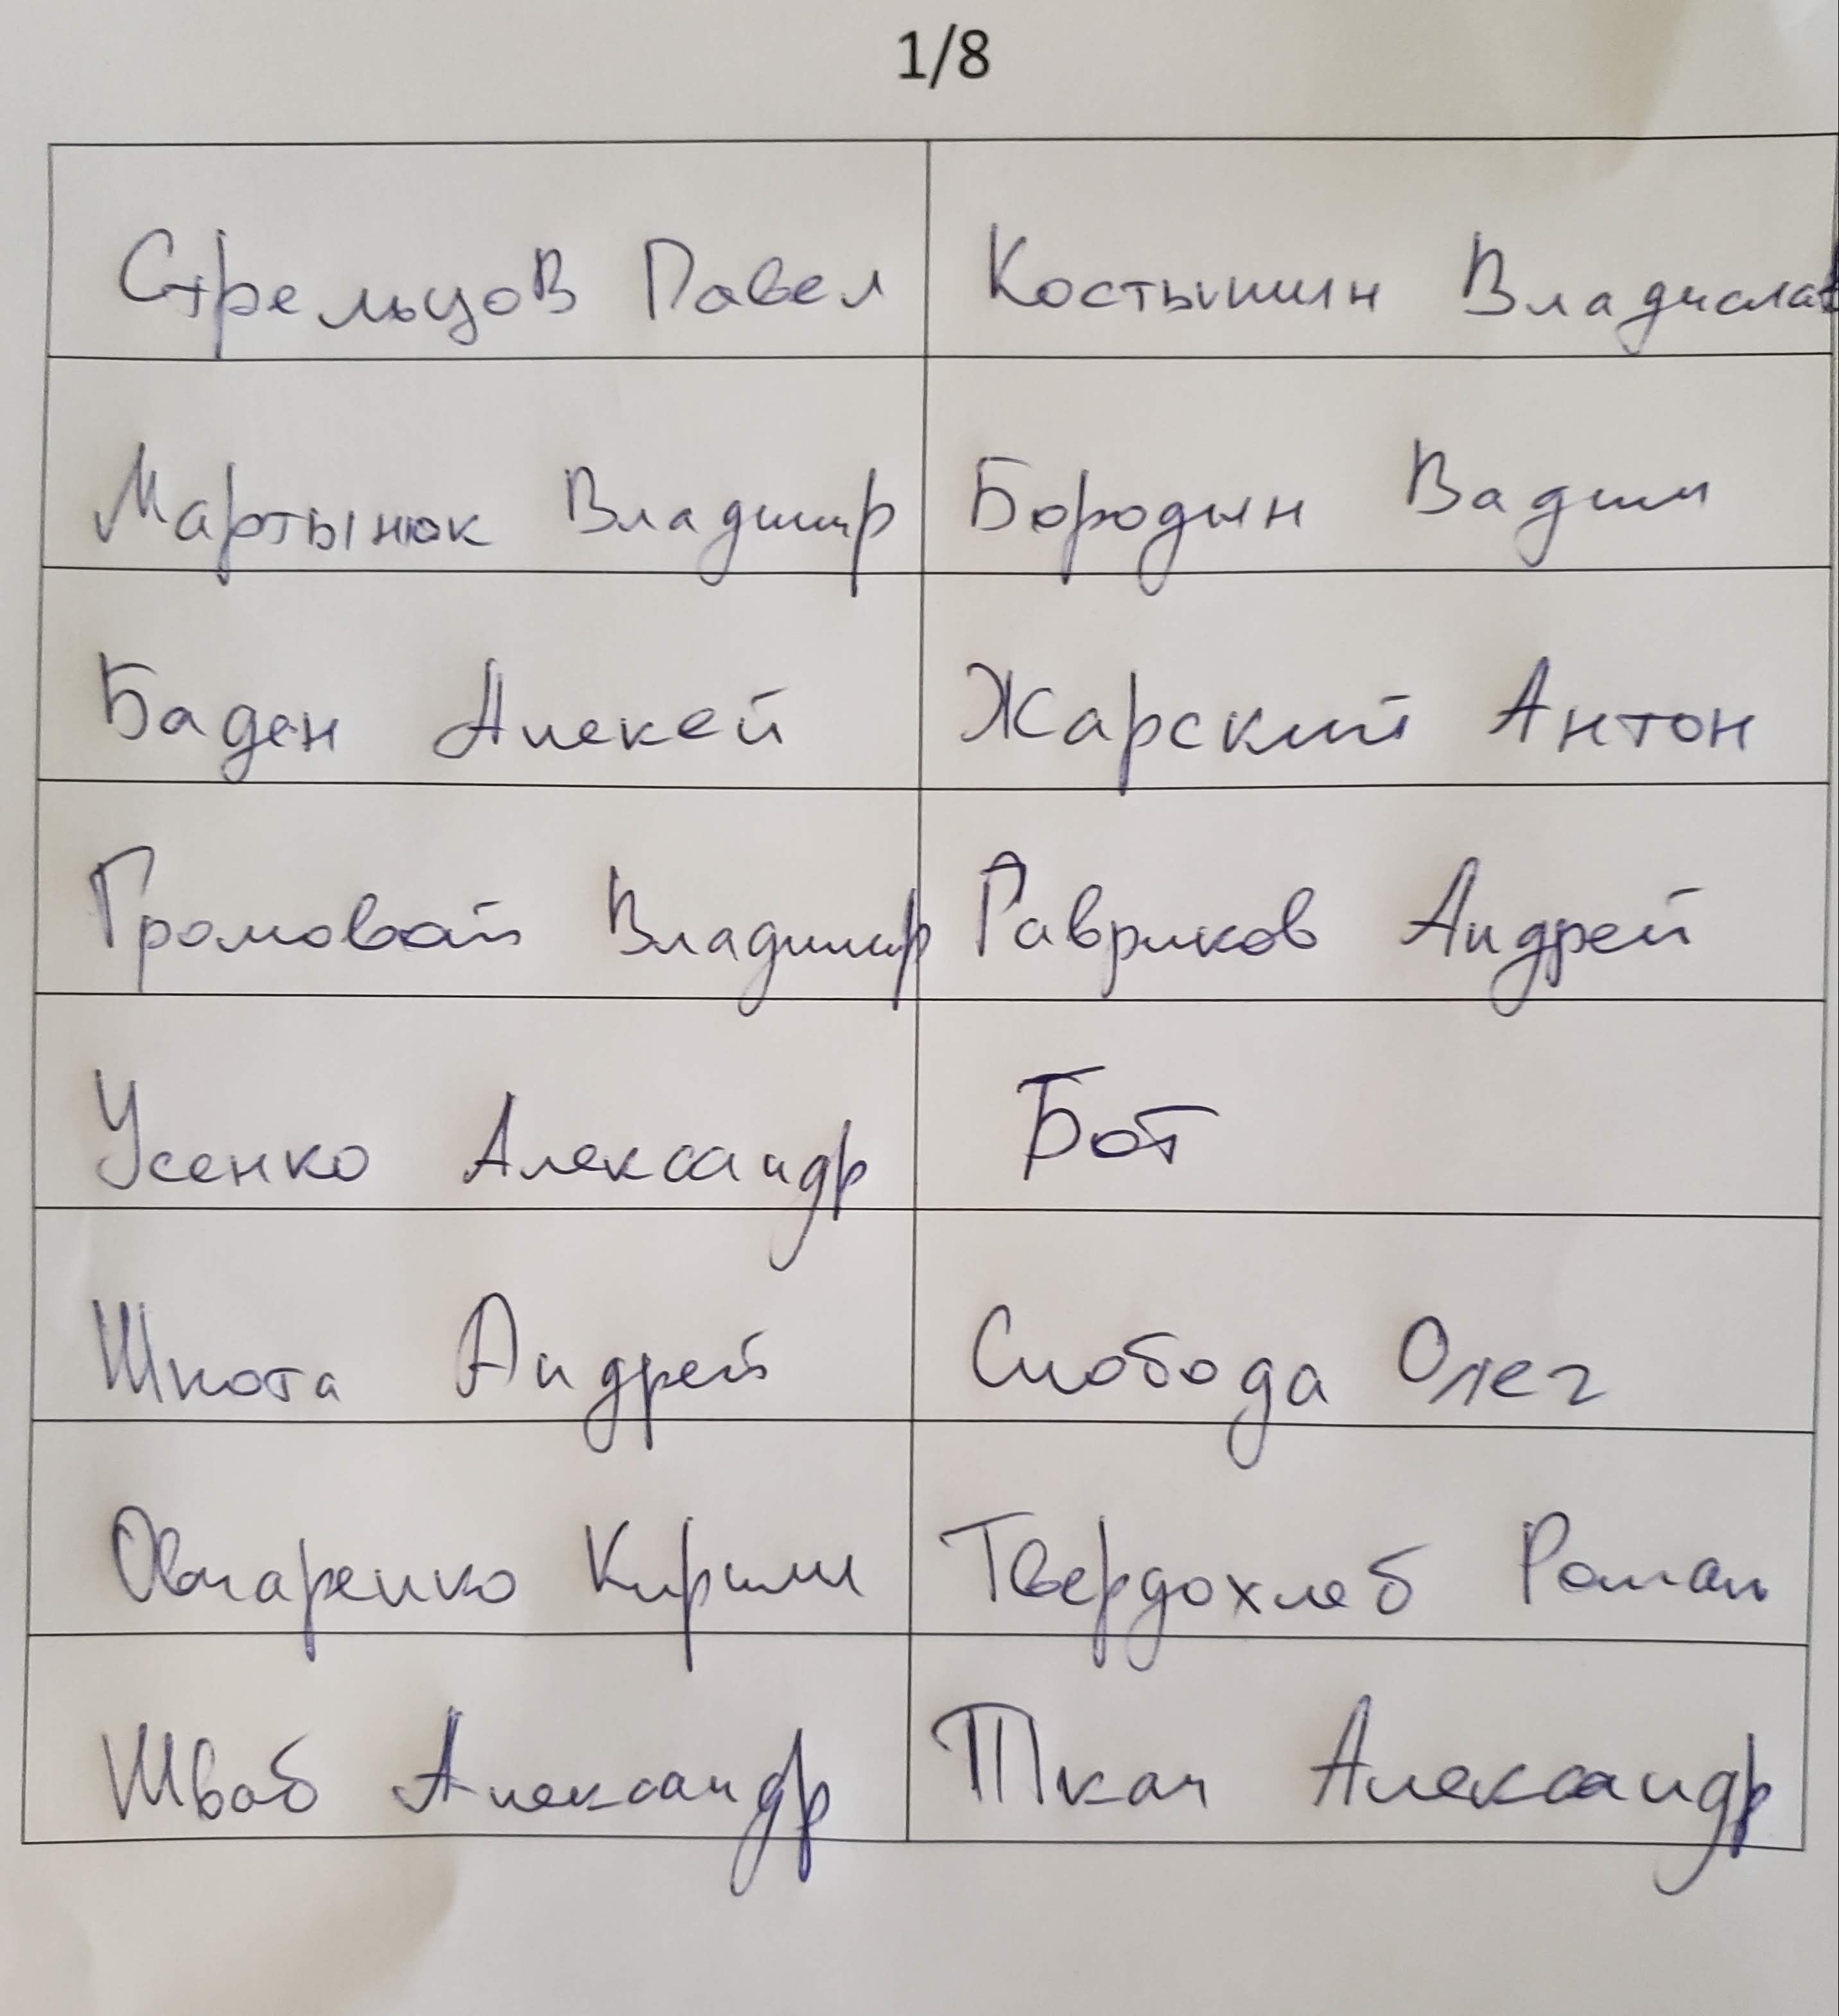 1/8
Стрельцов Павел Костышин Владислав
Мартынюк Владимир Бородын Вадим
Баден Алексей Жарский Антон
Громовой Владимир Гавриков Андрей
Усенко Александр Бот
Шкота Андрей Слобода Олег
Овчаренко Кирилл Твердохлеб Роман
Шваб Александр Ткач Александр